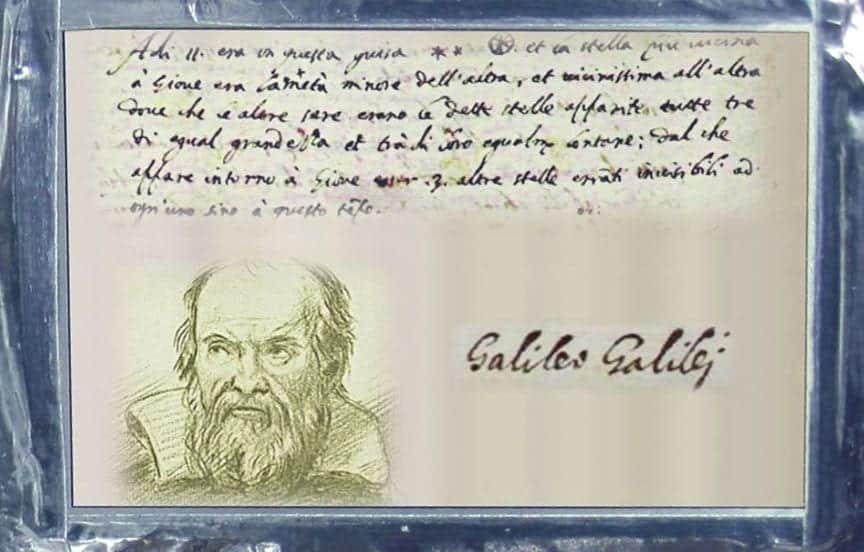 Adi 11. era in questa guisa ** et la stella più vicina
à Giove era la metà minore dell'altra, et vicinissima all'altra
dove che le altre sere erano le dette stelle apparite tutte tre
di egual grandezza et trà di loro egualm lontane; dal che
appare intorno à Giove esser .3. altre stelle errãti invisibili ad
ogn'uno sino à questo tẽpo.
Galileo Galilej